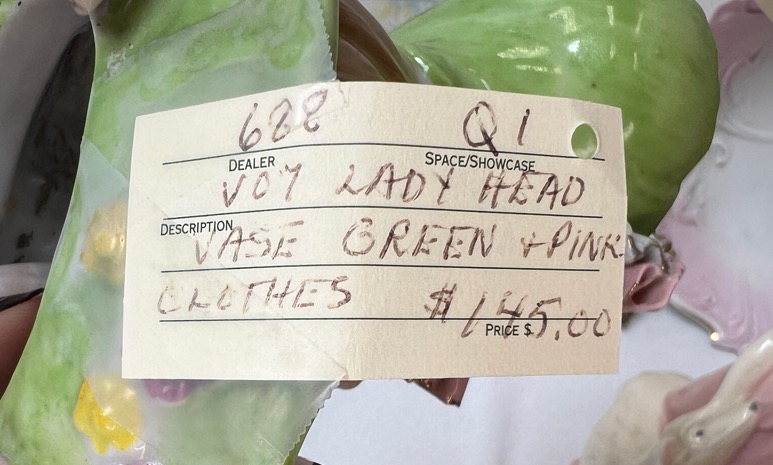 688 Q1
DEALER SPACE/SHOWCASE
VOY LADY HEAD
DESCRIPTION VASE GREEN + PINK
CLOTHES $145.00
PRICE $